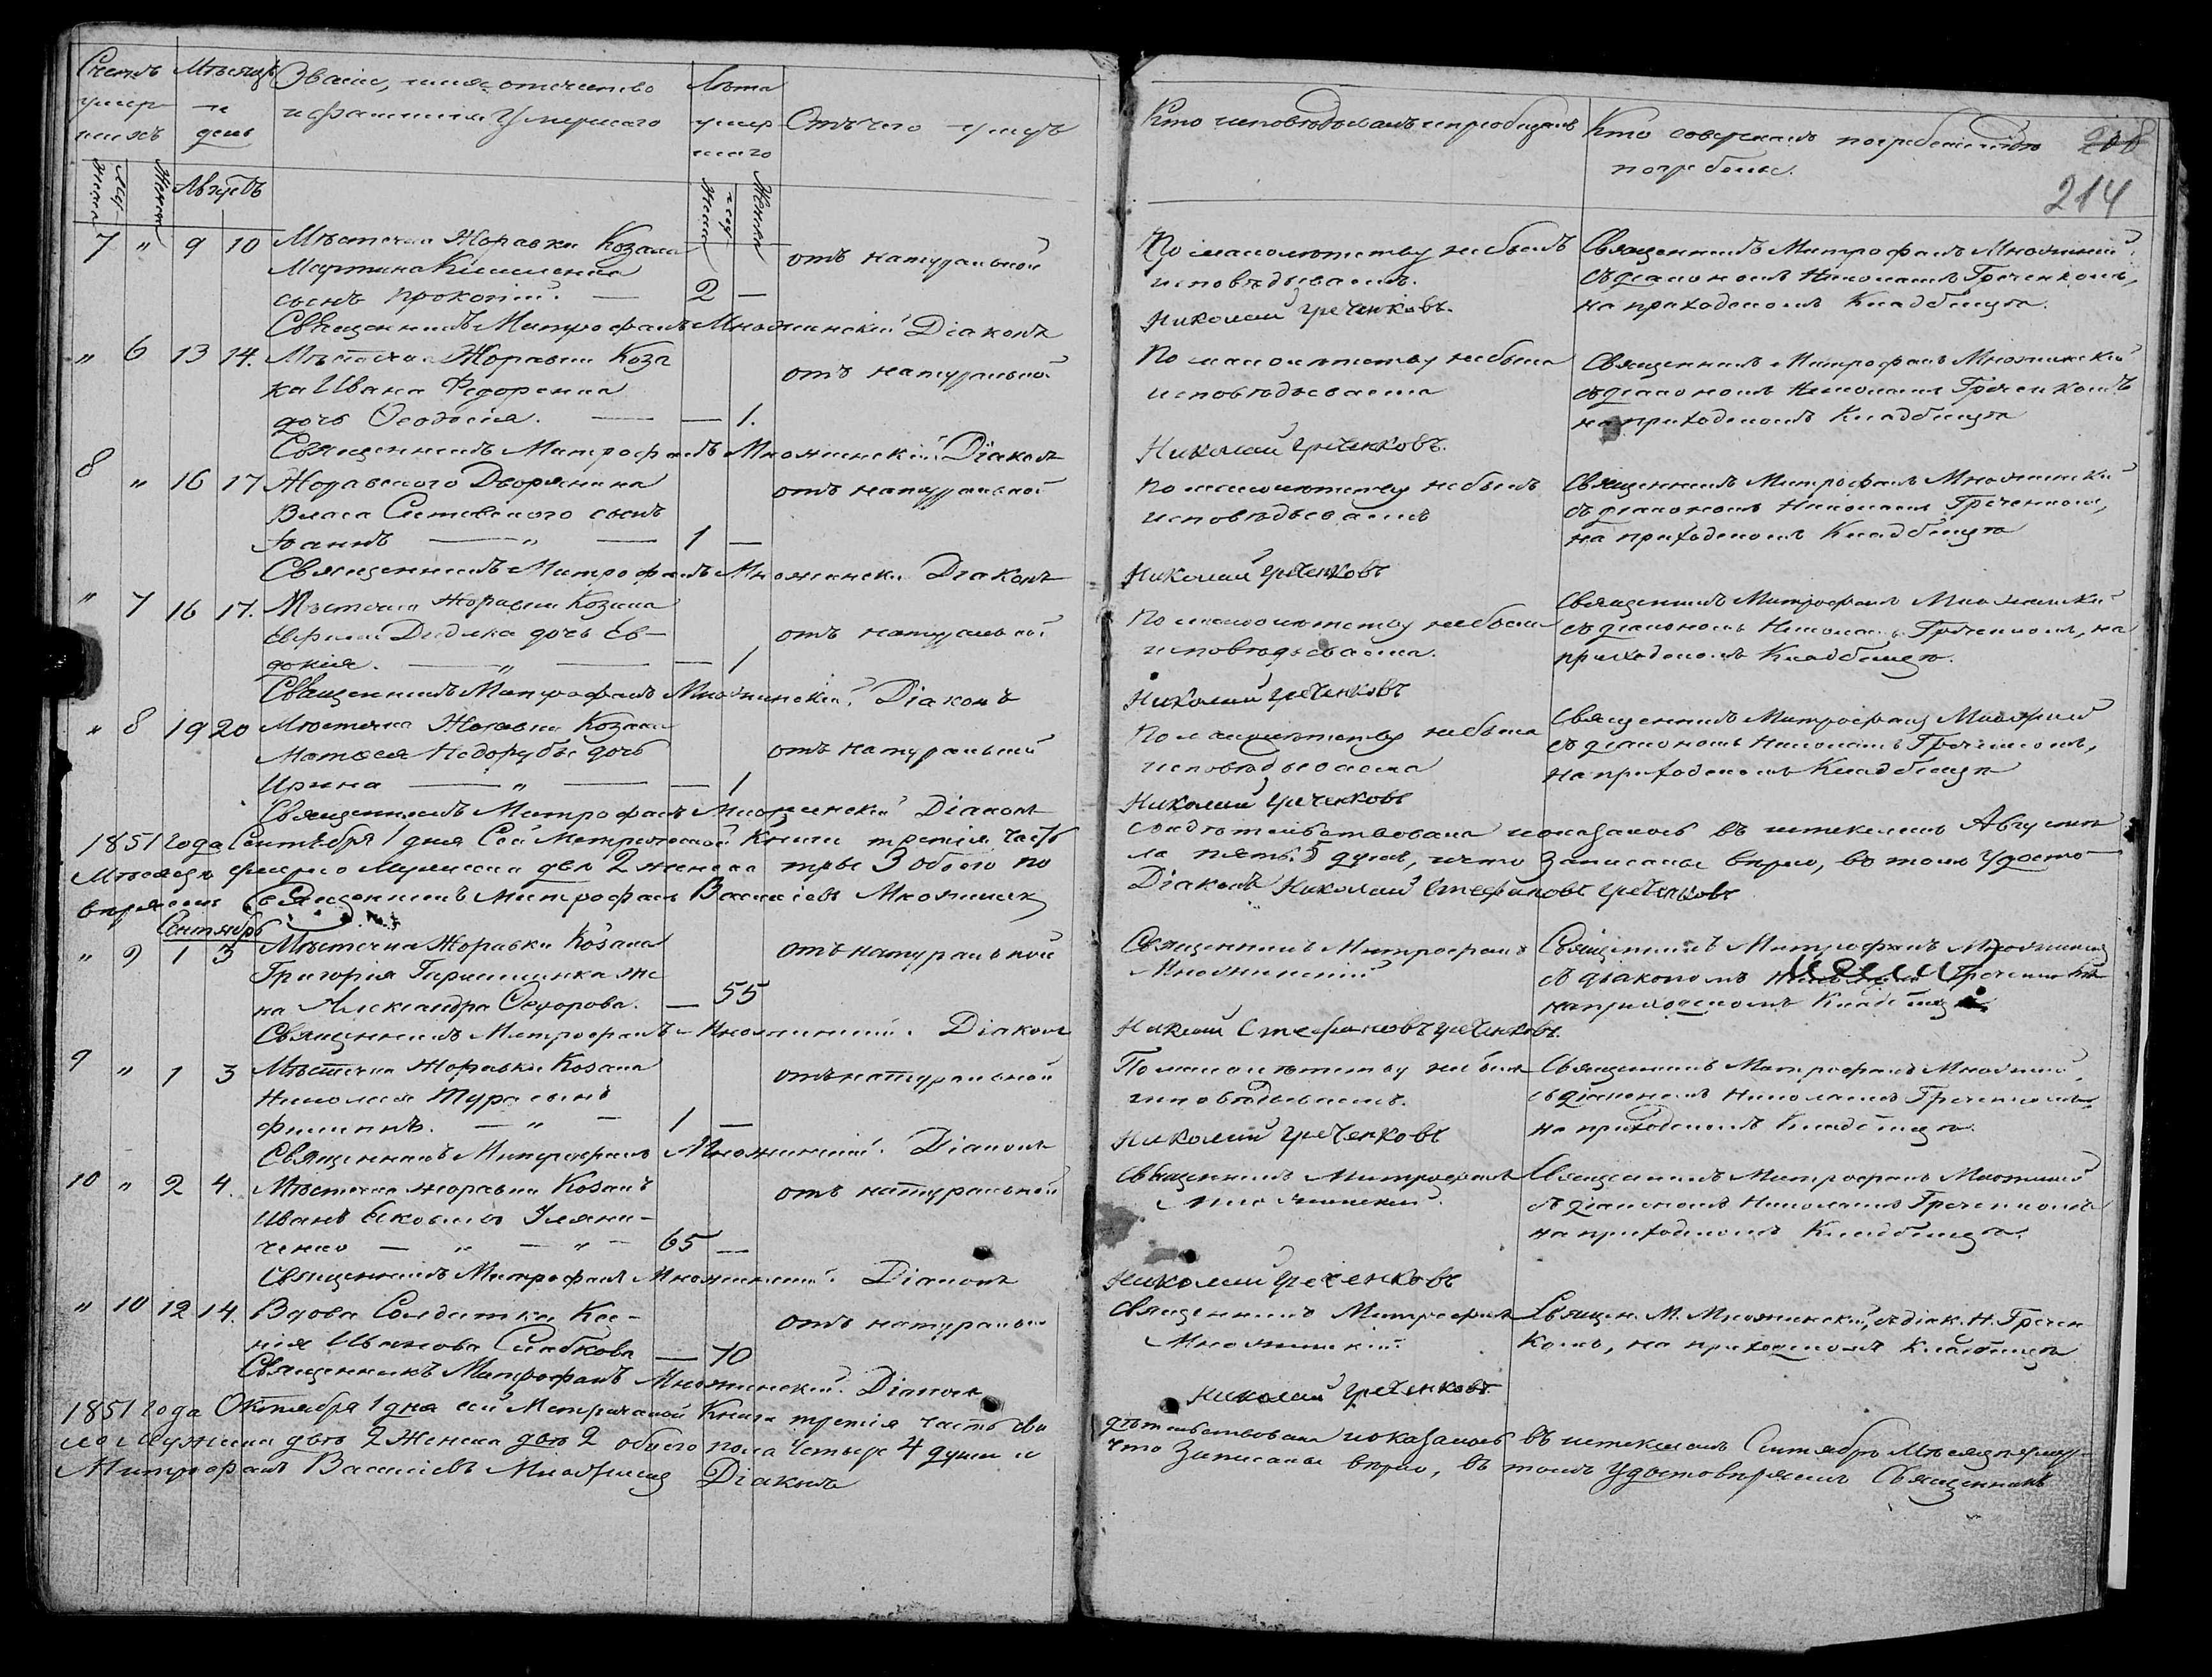 Счетъ умер-
шихъ
Мѣсяцъ
и
день
Званіе, имя, отечество
и фамилія Умершаго
Лѣта
умер
шаго
Отъ чего умеръ
Кто исповѣдывалъ и пріобщалъ
Кто совершалъ погребеніе и гдѣ
погребены.
208
214
Муж
Женска
Августъ
Женска
7 " 9 10 Мѣстечка Жоравки Козака
Мартина
сынъ Прокопій. — 2 —
отъ натуральной
По малолѣтству не былъ
исповѣдываемъ.
Священникъ Митрофанъ Множинскій
съ діакономъ Николаемъ Греченкомъ,
на приходскомъ Кладбищѣ.
Священникъ Митрофанъ Множинскій Діаконъ
Николай Греченковъ.
" 6 13 14. Мѣстечка Жоравки Коза
ка Ивана Федоренка
дочь Ѳеодосія. — — 1.
отъ натуральной
По малолѣтству не была
исповѣдываема
Священникъ Митрофанъ Множинскій
съ діакономъ Николаемъ Греченкомъ
на приходскомъ Кладбищѣ
Священникъ Митрофанъ Множинскій Діаконъ
Николай Греченковъ.
8 " 16 17 Жоравского Дворянина
Власа сынъ
Іоаннъ — " — 1 —
отъ натуральной
По малолѣтству не былъ
исповѣдываемъ
Священникъ Митрофанъ Множинскій
съ діакономъ Николаемъ Греченкомъ,
на приходскомъ Кладбищѣ
Священникъ Митрофанъ Множински Діаконъ
Николай Греченковъ
" 7 16 17. Мѣстечка Жоравки Козака
дочь Ев-
докія. — " — — 1
отъ натуральной
По малолѣтству не была
исповѣдываема.
Священникъ Митрофанъ Множински
съ діакономъ Николаемъ Греченкомъ, на
приходскомъ Кладбищѣ.
Священникъ Митрофанъ Множинскій Діаконъ
Николай Греченковъ
" 8 19 20 Мѣстечка Жоравки Козака
Матвея Недорубы дочь
Ирина — " — — 1
отъ натуральной
По малолѣтству не была
исповѣдываема
Священникъ Митрофанъ
съ діакономъ Николаемъ Греченкомъ,
на приходскомъ Кладбищѣ
Священникъ Митрофанъ Множинскій Діаконъ
Николай Греченковъ
1851 года Сентября 1 дня Сей Метрической Книги третія часть
свидѣтельствована и оказалось въ истекшемъ Августѣ
Мѣсяцѣ умерло Мужеска два 2 женска три 3 обоего по
ла пять 5 душъ, и что записаны вѣрно, въ томъ Удосто
вѣряемъ Священникъ Митрофанъ Васильевъ
Діаконъ Николай Стефановъ Греченковъ
Сентябрь
" 9 1 3 Мѣстечка Жоравки Козака
Григорія же
на Александра Ѳедорова. — 55
отъ натуральной
Священникъ Митрофанъ
Множинскій
Священникъ Митрофанъ Множинскій
съ діакономъ
на приходскомъ
Священникъ Митрофанъ Множинскій. Діаконъ
Николай Стефановъ Греченковъ.
9 " 1 3 Мѣстечка Жоравки Козака
Николая сынъ
Филиппъ. — " — 1 —
отъ натуральной
По малолѣтству не былъ
исповѣдываемъ.
Священникъ Митрофанъ
съ діакономъ Николаемъ Греченкомъ,
на приходскомъ Кладбищѣ.
Священникъ Митрофанъ Множинскій. Діаконъ
Николай Греченковъ
10 " 2 4. Мѣстечка Жоравки Козакъ
Иванъ Уляни-
ченко — " — " — 65 —
отъ натуральной
Священникъ Митрофанъ
Множинский.
Священникъ Митрофанъ
съ діакономъ Николаемъ Греченкомъ
на приходскомъ Кладбищѣ.
Священникъ Митрофанъ Множинский. Діаконъ
Николай Греченковъ
" 10 12 14. Вдова Солдатка Ксе-
нія Иванова Слабкова — 70
отъ натуральн
Священникъ Митрофанъ
Множинскій.
Священ. М. Множинскій, съ діак. Н. Гречен
комъ, на приходскомъ Кладбищѣ
Священникъ Митрофанъ Множинскій. Діаконъ
Николай Греченковъ.
1851 года Октября 1 дня сей Метрической Книги третія часть сви
дѣтельствована и оказалось въ истекшемъ Сентябрѣ Мѣсяцѣ умер-
ло Мужеска два 2 Женска два 2 обоего пола Четыре 4 души и
что Записаны вѣрно, въ томъ удостовѣряемъ Священникъ
Митрофанъ Васильевъ Діаконъ